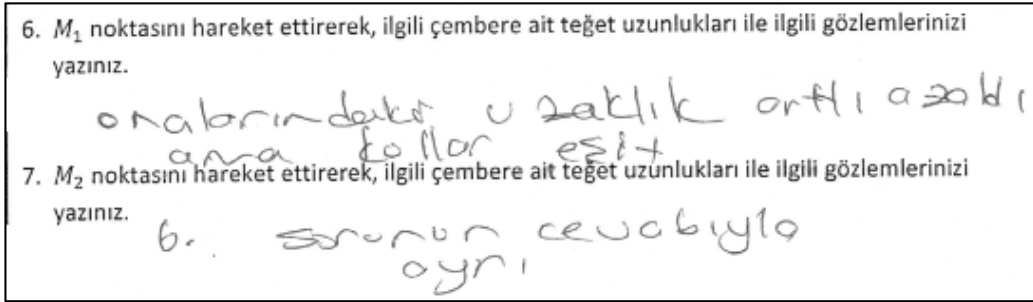 6. M₁ noktasını hareket ettirerek, ilgili çembere ait teğet uzunlukları ile ilgili gözlemlerinizi
yazınız.
oralarındaki uzaklık arttı azaldı
ama kollar eşit
7. M₂ noktasını hareket ettirerek, ilgili çembere ait teğet uzunlukları ile ilgili gözlemlerinizi
yazınız.
6. sorunun cevabıyla
ayrı